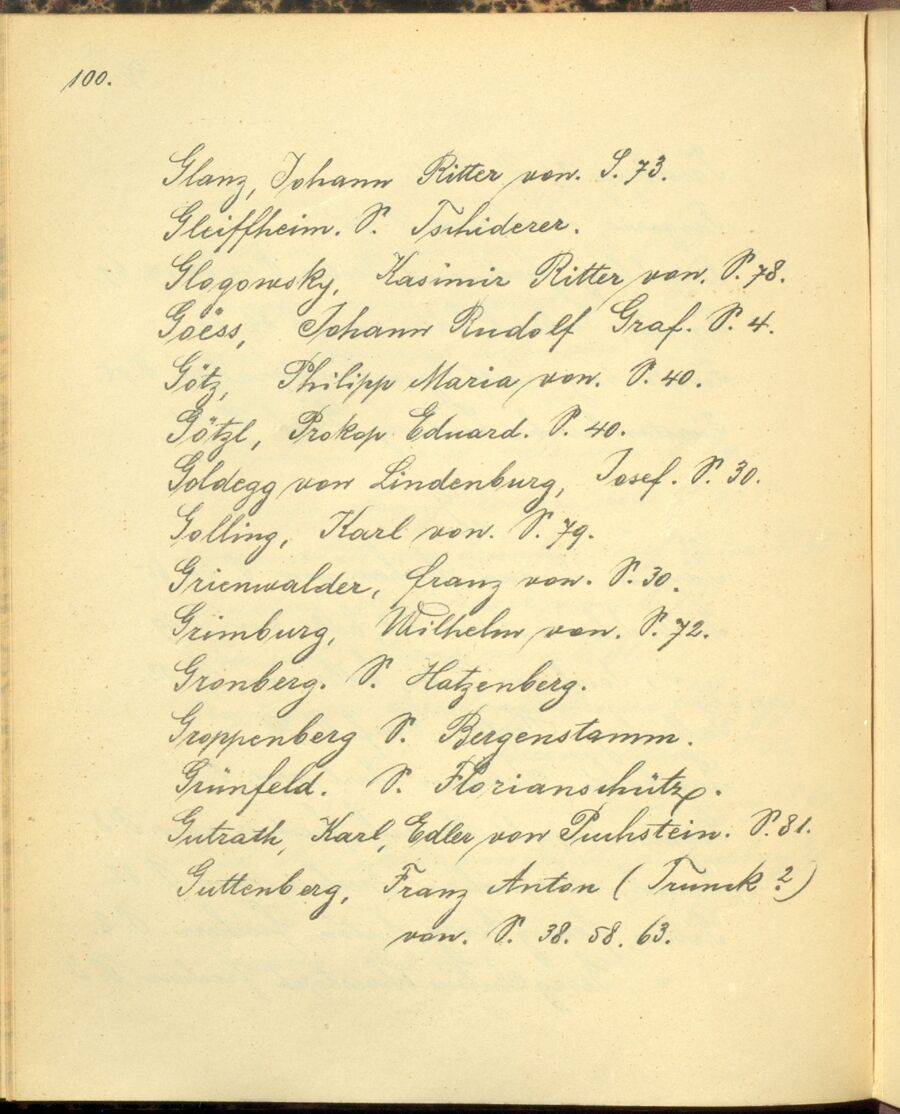 100.
Glanz, Johann Ritter von. S. 73.
Gleiffheim. S. Tschiderer.
Glogowsky, Kasimir Ritter von. S. 78.
Goëss, Johann Rudolf Graf. S. 4.
Götz, Philipp Maria von. S. 40.
Götzl, Prokop Eduard. S. 40.
Goldegg von Lindenburg, Josef. S. 30.
Golling, Karl von. S. 79.
Grienwalder, Franz von. S. 30.
Grimburg, Wilhelm von. S. 72.
Gronberg. S. Hatzenberg.
Groppenberg S. Bergenstamm.
Grünfeld. S. Florianschütz.
Gutrath, Karl, Edler von Puchstein. S. 81.
Guttenberg, Franz Anton (Trunck?)
von. S. 38. 58. 63.